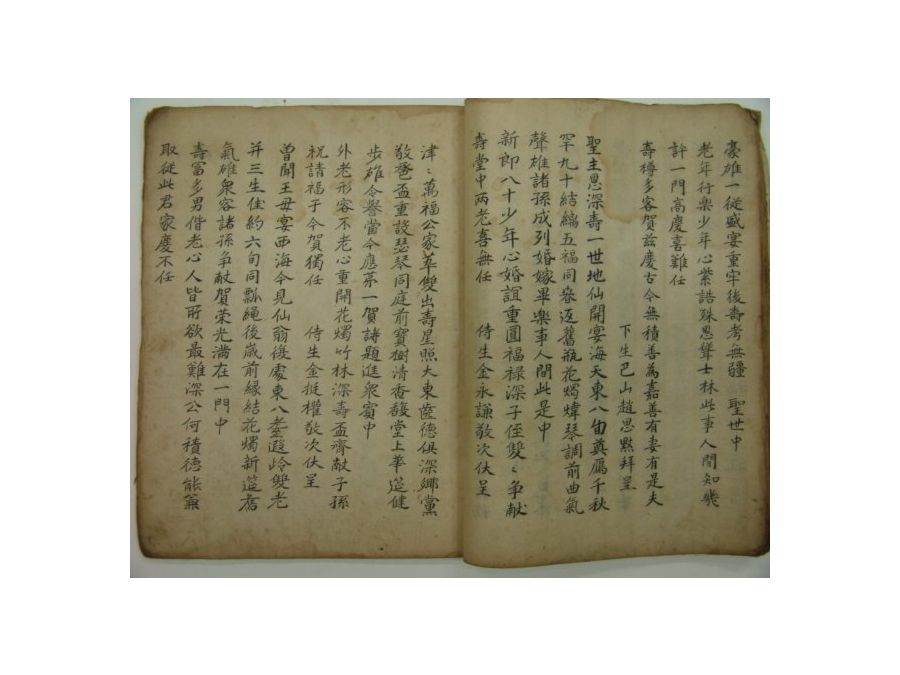 豪雄一從盛宴重牢後壽考無疆 聖世中
老年行樂少年心紫誥殊恩聳士林此事人間知幾
許一門高慶喜難任
壽樽多客賀玆慶古今無積善爲嘉善有妻有是夫
下生巴山趙思㸃拜呈
聖主恩深壽一世地仙開宴海天東八旬奠鴈千秋
罕九十結縭五福同衆返舊瓶花燭煒琴調前曲氣
聲雄諸孫成列婚嫁畢樂事人間此是中
新郎八十少年心婚誼重圓福禄深子侄雙〻爭献
壽堂中兩老喜無任 侍生金永謙敬次伏呈
津〻萬福公家葉雙出壽星照大東齒德俱深鄕黨
敬卺盃重設瑟琴同庭前寶樹清香馥堂上華筵健
步雄令譽當今應第一賀詩題進衆賓中
外老形容不老心重開花燭竹林深壽盃齊献子孫
祝請福于今賀獨任 侍生金挺權敬次伏呈
曽聞王母宴西海今見仙翁後處東八耋遐岭雙老
幷三生佳約六旬同瓢繩後歳前縁結花燭新筵舊
氣雄衆客諸孫爭献賀荣光满在一門中
壽富多男偕老心人皆所欲最難深公何積德能兼
取從此君家慶不任